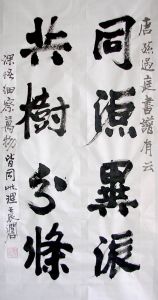 唐孫過庭書譜有云
同源異派
共樹分條
深悟細察萬物皆同此理壬辰